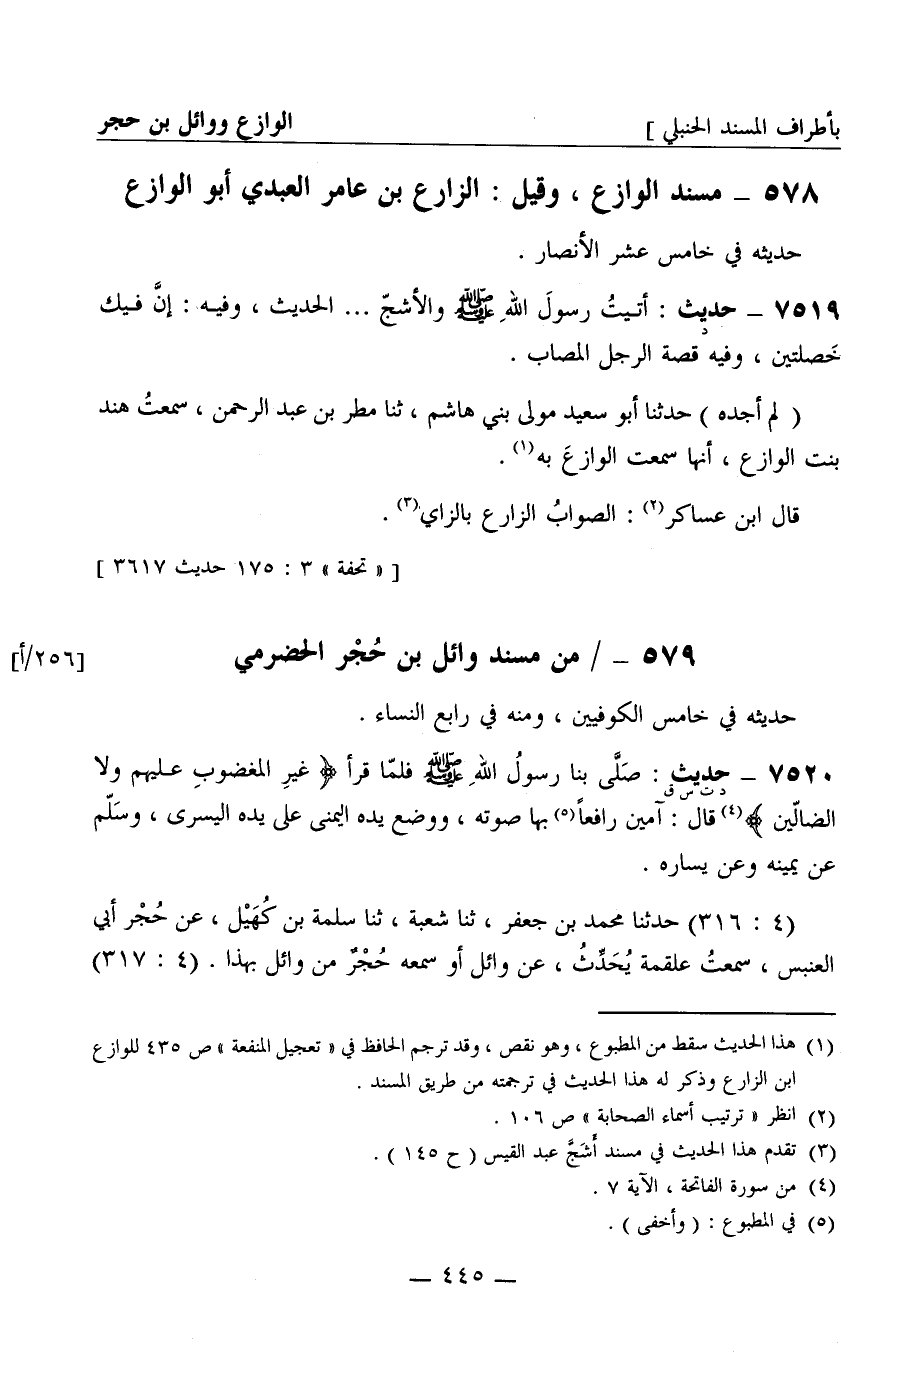 بأطراف المسند الحنبلي ] الوازع ووائل بن حجر
٥٧٨ ـ مسند الوازع ، وقيل : الزارع بن عامر العبدي أبو الوازع
حديثه في خامس عشر الأنصار .
٧٥١٩ ـ حديث : أتيتُ رسولَ اللهِ ﷺ والأشجّ ... الحديث ، وفيه : إنَّ فيك
د
خَصلتين ، وفيه قصة الرجل المصاب .
( لم أجده ) حدثنا أبو سعيد مولى بني هاشم ، ثنا مطر بن عبد الرحمن ، سمعتُ هند
بنت الوازع ، أنها سمعت الوازعَ به(١) .
قال ابن عساكر(٢) : الصوابُ الزارع بالزاي(٣) .
[ « تحفة » ٣ : ١٧٥ حديث ٣٦١٧ ]
٥٧٩ ـ / من مسند وائل بن حُجْر الحضرمي [٢٥٦/أ]
حديثه في خامس الكوفيين ، ومنه في رابع النساء .
٧٥٢٠ ـ حديث : صَلَّى بنا رسولُ اللهِ ﷺ فلمّا قرأ ﴿ غيرِ المغضوبِ عليهم ولا
د ت س ق
الضالّين ﴾(٤) قال : آمين رافعاً(٥) بها صوته ، ووضع يده اليمنى على يده اليسرى ، وسَلّم
عن يمينه وعن يساره .
(٤ : ٣١٦) حدثنا محمد بن جعفر ، ثنا شعبة ، ثنا سلمة بن كُهَيْل ، عن حُجْر أبي
العنبس ، سمعتُ علقمة يُحَدِّثُ ، عن وائل أو سمعه حُجْرٌ من وائل بهذا . (٤ : ٣١٧)
(١) هذا الحديث سقط من المطبوع ، وهو نقص ، وقد ترجم الحافظ في « تعجيل المنفعة » ص ٤٣٥ للوازع
ابن الزارع وذكر له هذا الحديث في ترجمته من طريق المسند .
(٢) انظر « ترتيب أسماء الصحابة » ص ١٠٦ .
(٣) تقدم هذا الحديث في مسند أَشَجَّ عبد القيس ( ح ١٤٥ ) .
(٤) من سورة الفاتحة ، الآية ٧ .
(٥) في المطبوع : ( وأخفى ) .
ـ ٤٤٥ ـ